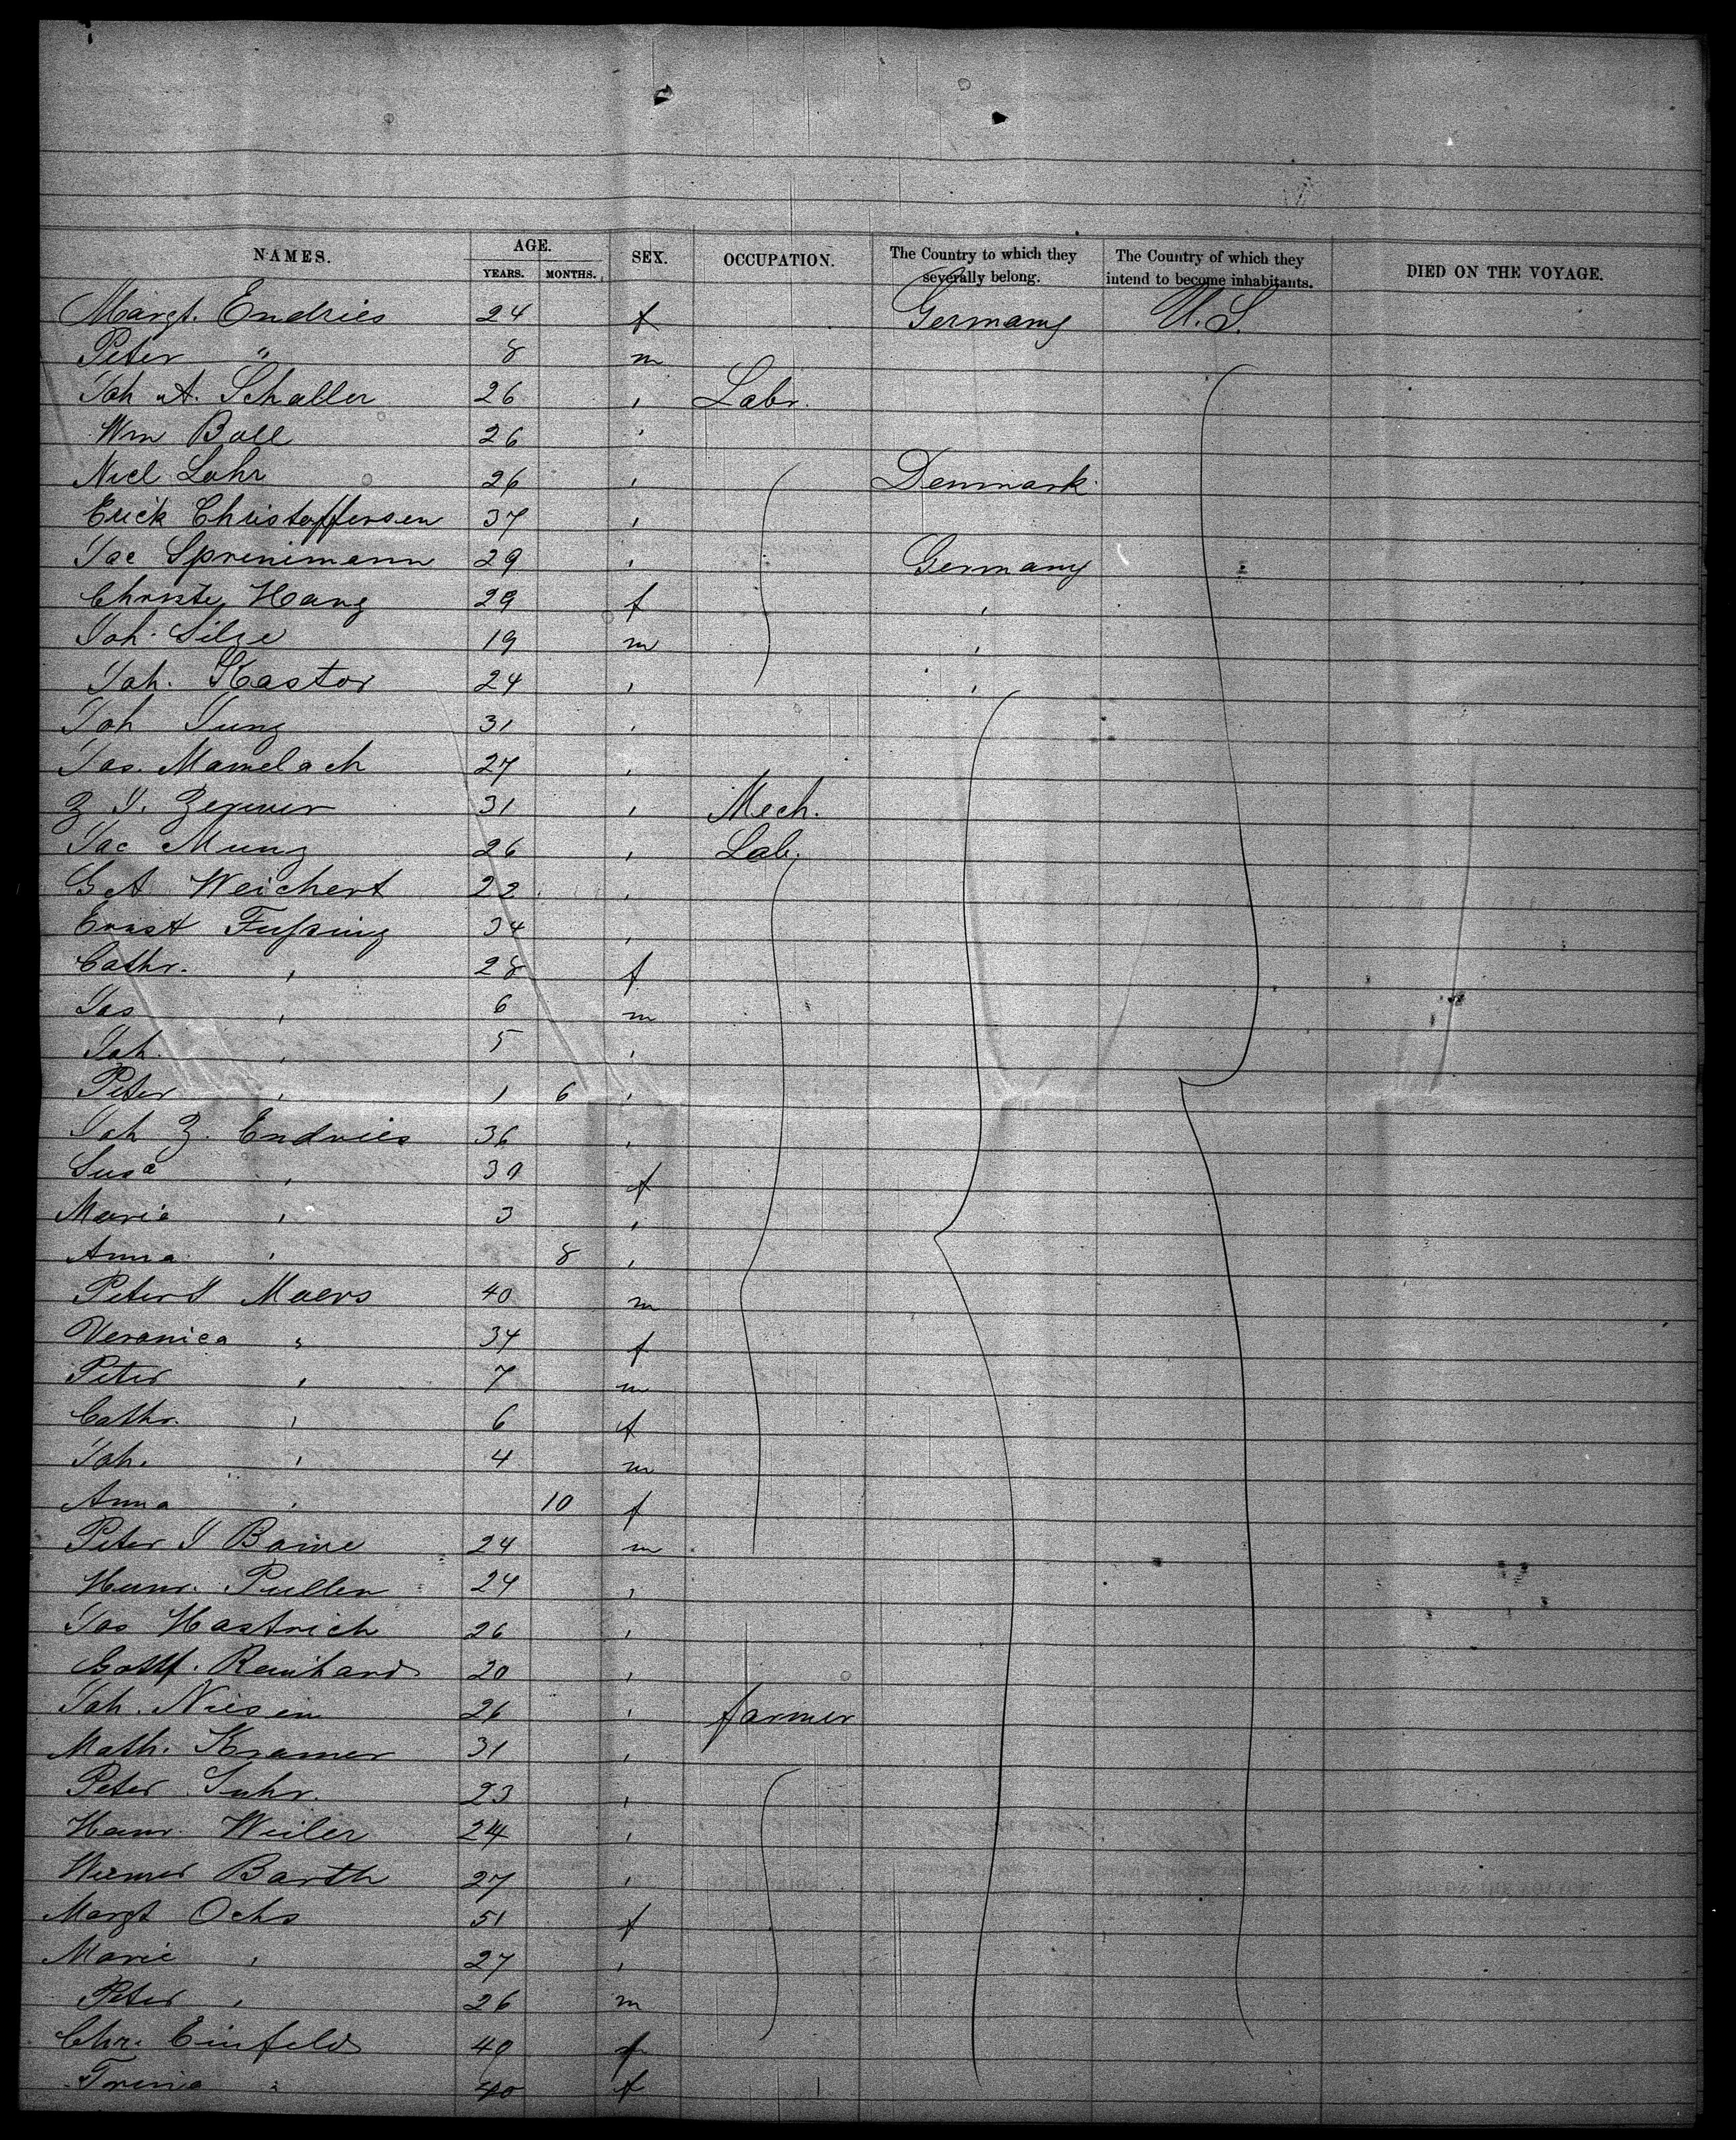 NAMES. AGE. SEX. OCCUPATION. The Country to which they severally belong. The Country of which they intend to become inhabitants. DIED ON THE VOYAGE.
YEARS. MONTHS.
Margt. Endries 24 f Germany U.S.
Peter " 8 m
Joh A. Schaller 26 , Labr.
Wm Boll 26 ,
Nicl Lohr 26 , Denmark.
Erick Christoffersen 37 ,
Jac Sprenimann 29 , Germany
Christe Hang 29 f ,
Joh. Silze 19 m ,
Joh. Kastor 24 , ,
Joh Jung 31 ,
Jos. Mamelach 27 ,
31 , Mech.
Jac Munz 26 , Lab,
Weichert 22 ,
Ernst Fußing 34 ,
Cathr. , 28 f
Jos , 6 m
Joh. , 5 ,
Peter , 1 6 ,
Joh Z. Endries 36 ,
Susa , 30 f
Marie , 3 ,
Anna , 8 ,
Peter J Maers 40 m
Veronica , 34 f
Peter , 7 m
Cathr. , 6 f
Joh. , 4 m
Anna , 10 f
Peter J Baine 24 m
Heinr. Pullen 24 ,
Jos Hastrich 26 ,
Gottf. Reinhard 20 ,
Joh. Niesen 26 , farmer
Math. Kramer 31 ,
Peter Suhr. 23 ,
Heinr. Weiler 24 ,
Werner Barth 27 ,
Margt Ochs 51 f
Marie , 27 ,
Peter , 26 m
Chr. Einfeld 40 f
Trina " 40 f